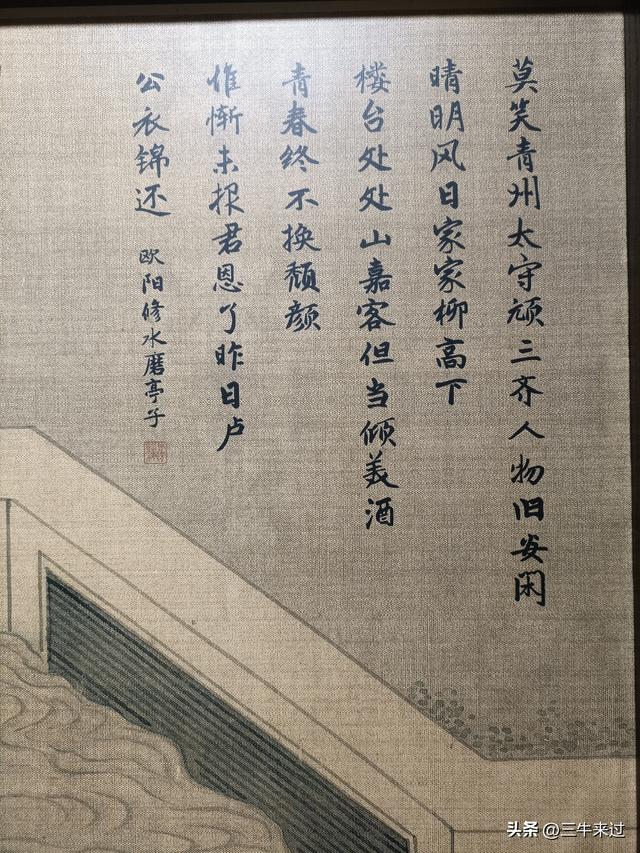 莫笑青州太守顽三齐人物旧安闲
晴明风日家家柳高下
楼台处处山嘉客但当倾美酒
青春终不换颓颜
惟惭未报君恩了昨日卢
公衣锦还
欧阳修水磨亭子
头条 @三牛来过